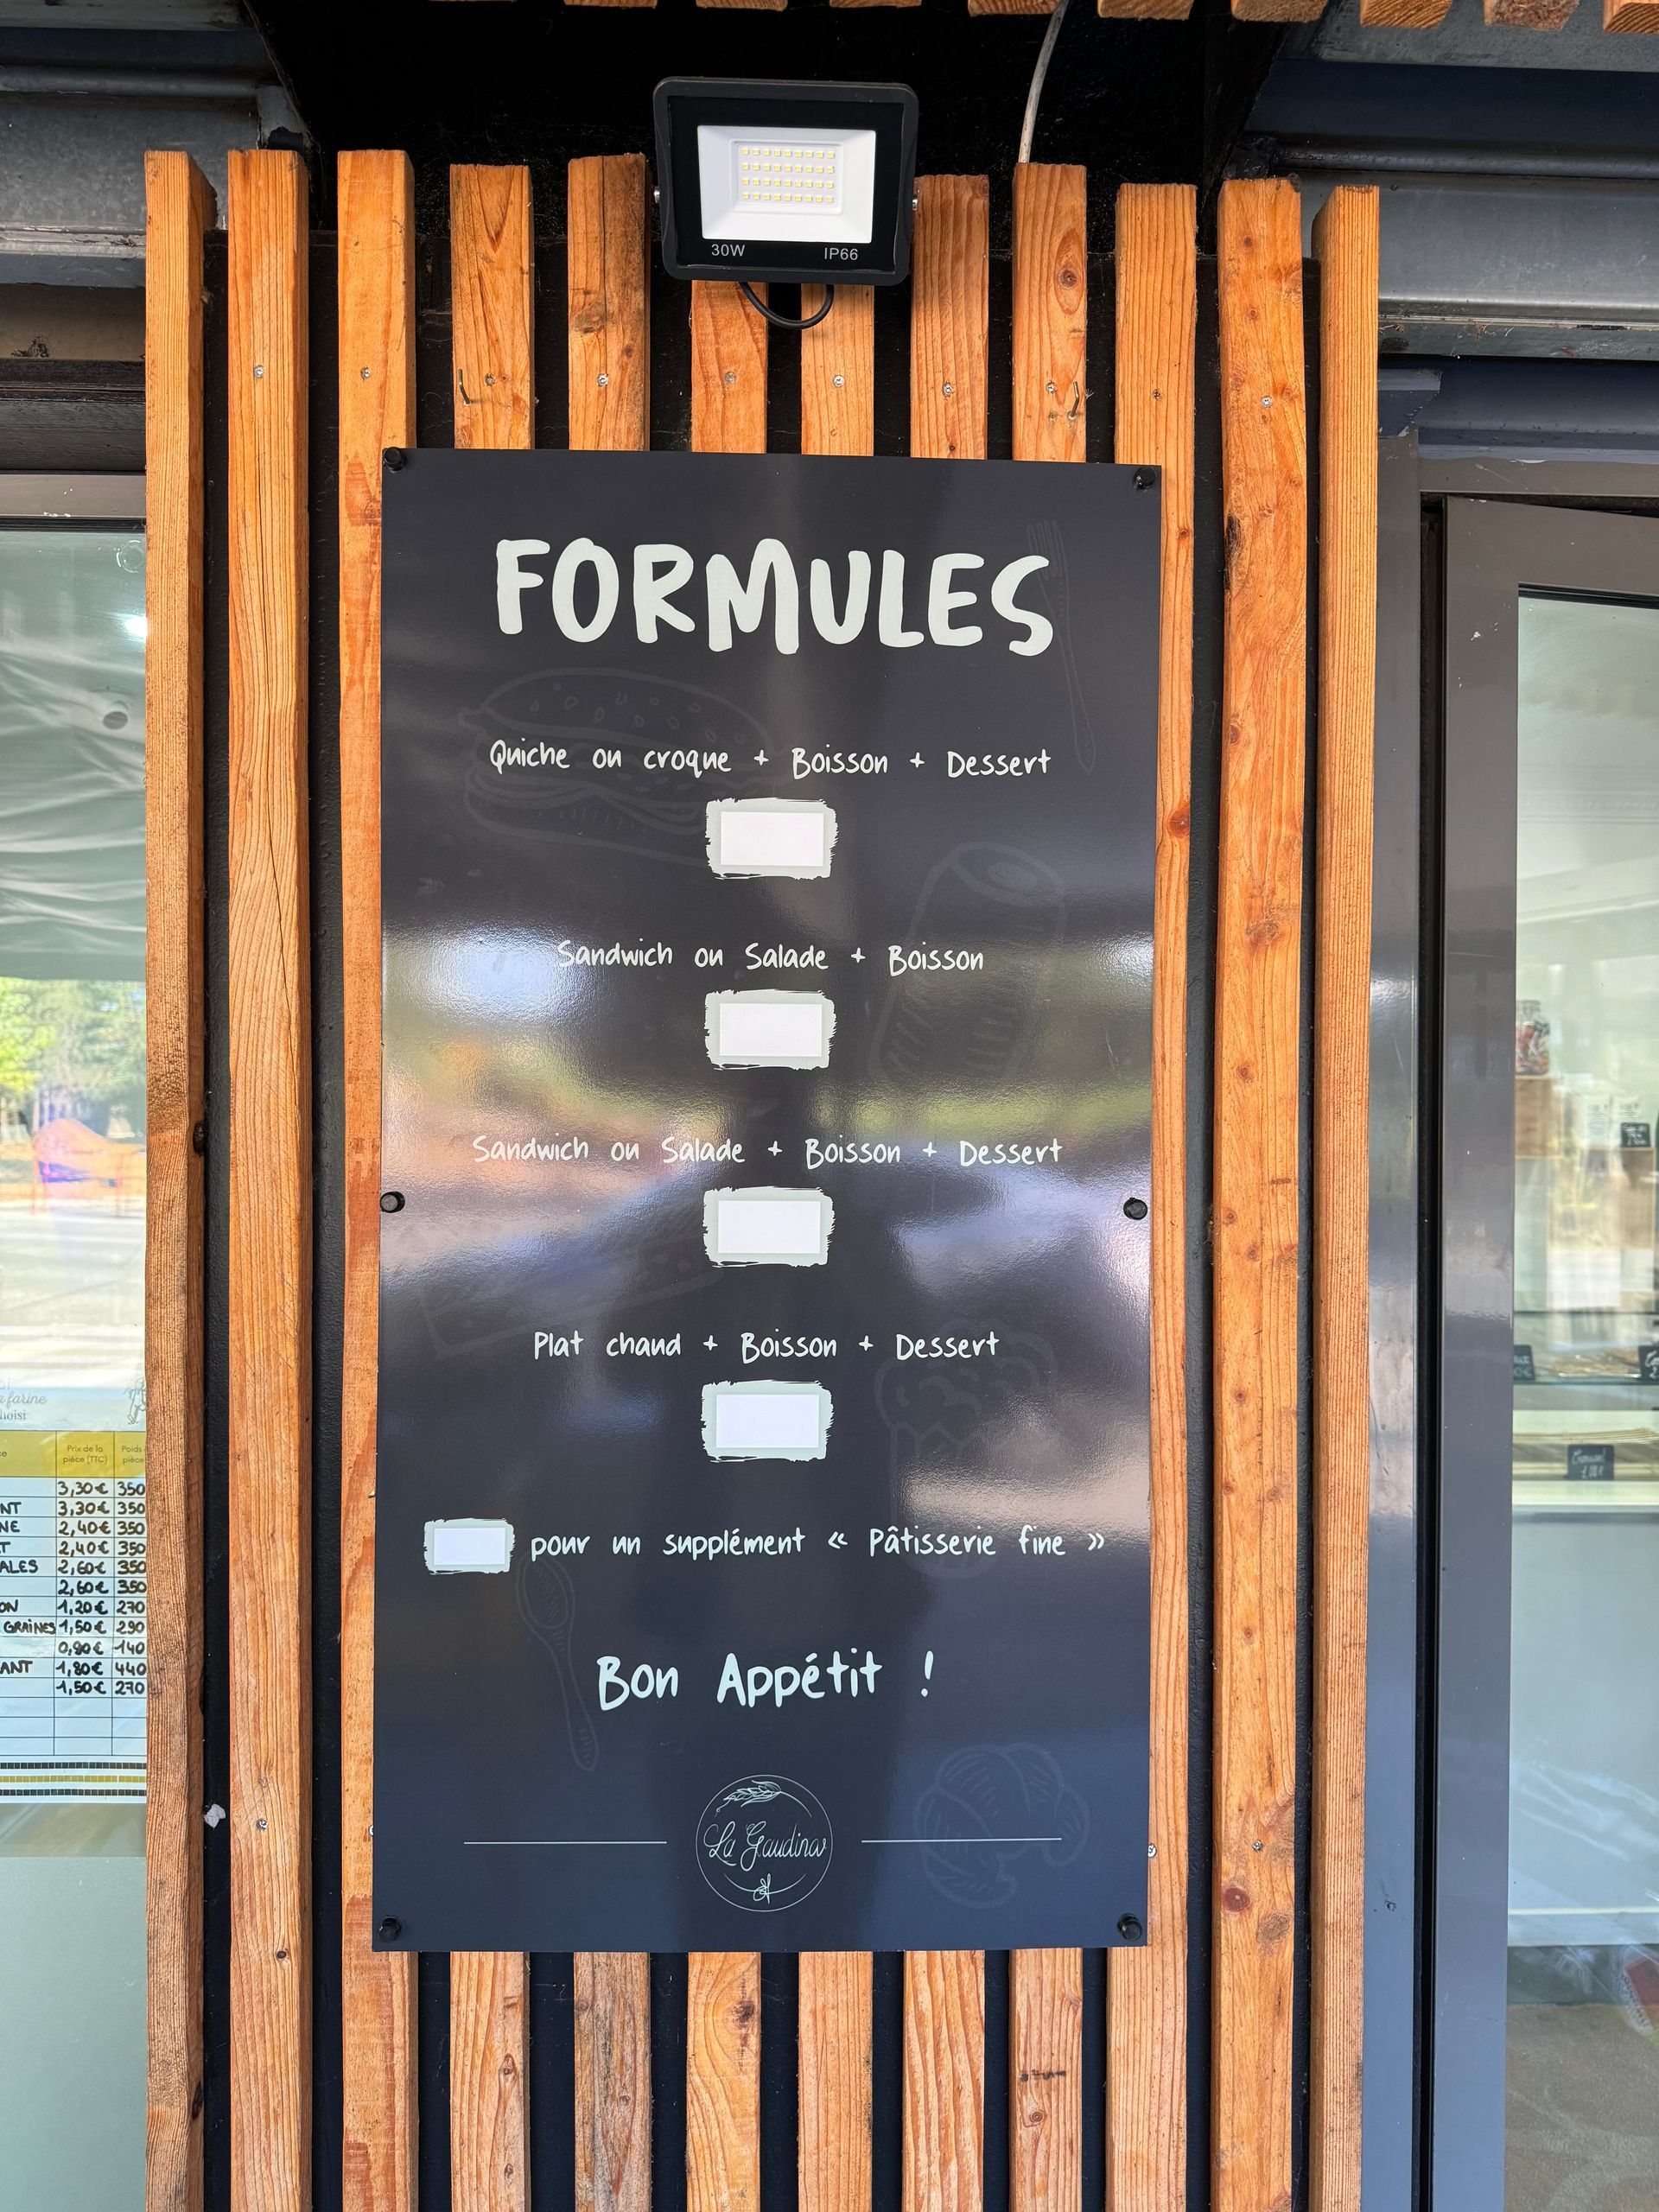 30W IP66
FORMULES
Quiche ou croque + Boisson + Dessert
Sandwich ou Salade + Boisson
Sandwich ou Salade + Boisson + Dessert
Plat chaud + Boisson + Dessert
pour un supplément « Pâtisserie fine »
Bon Appétit !
La Gaudina
farine
Prix de la Poids
pièce (TTC) pièce
3,30€ 350
NT 3,30€ 350
NE 2,40€ 350
T 2,40€ 350
ALES 2,60€ 350
2,60€ 350
ON 1,20€ 270
GRAINES 1,50€ 290
0,90€ 140
ANT 1,80€ 440
1,50€ 270